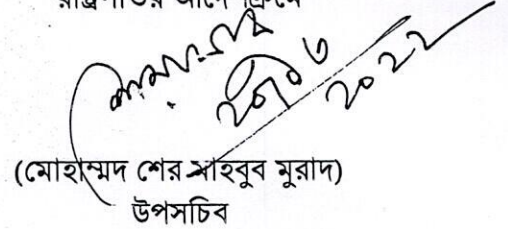 রাষ্ট্রপতির আদেশক্রমে
২০২২
(মোহাম্মদ শের মাহবুব মুরাদ)
উপসচিব